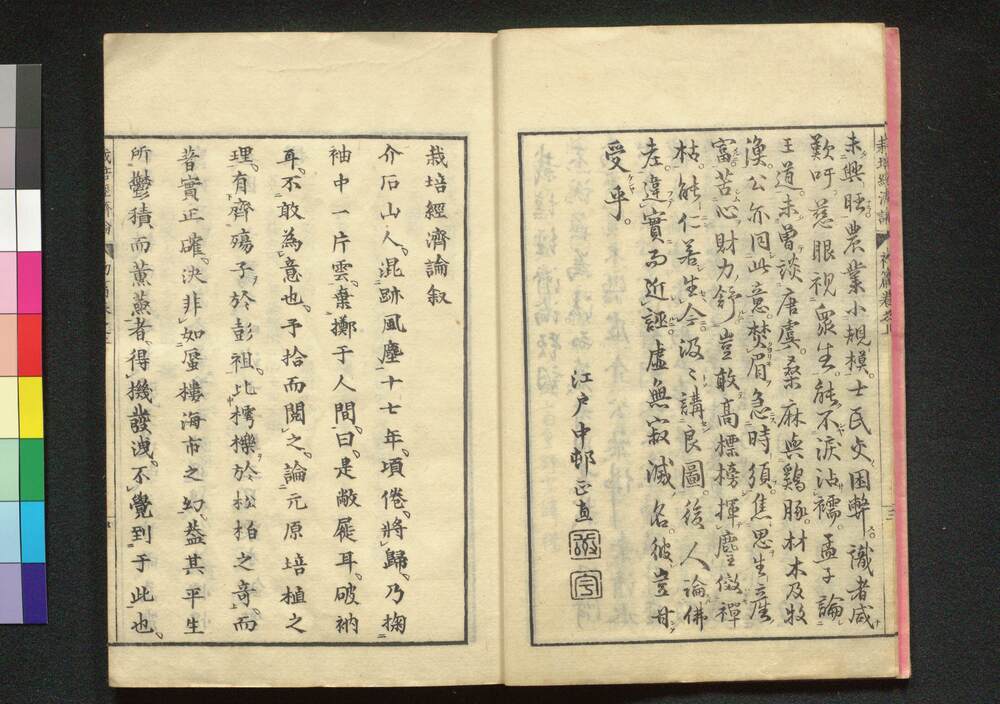 栽培經濟論
初篇卷之上
未興旺農業小規模士民久困弊識者咸
歎吁慈眼視衆生能不淚沾襦孟子論
王道未曽談唐虞桑麻與鷄豚材木及牧
漁公亦同此意焚眉急時須焦思生産
富苦心財力舒豈敢高標榜揮麈徴禪
枯能仁善生今汲〻講良圖後人論佛
老違實而近誣虚無寂滅名彼豈甘
受乎
江戸中邨正直
栽培經濟論叙
介石山人混跡風塵十七年頃倦將歸乃掬
袖中一片雲棄擲于人間曰是敝屣耳破衲
耳不敢為意也予拾而閲之論元原培植之
理有齊殤子於彭祖比樗櫟於松柏之竒而
著實正確決非如蜃樓海市之幻益其平生
所鬱積而薫蒸者得機發洩不覺到于此也